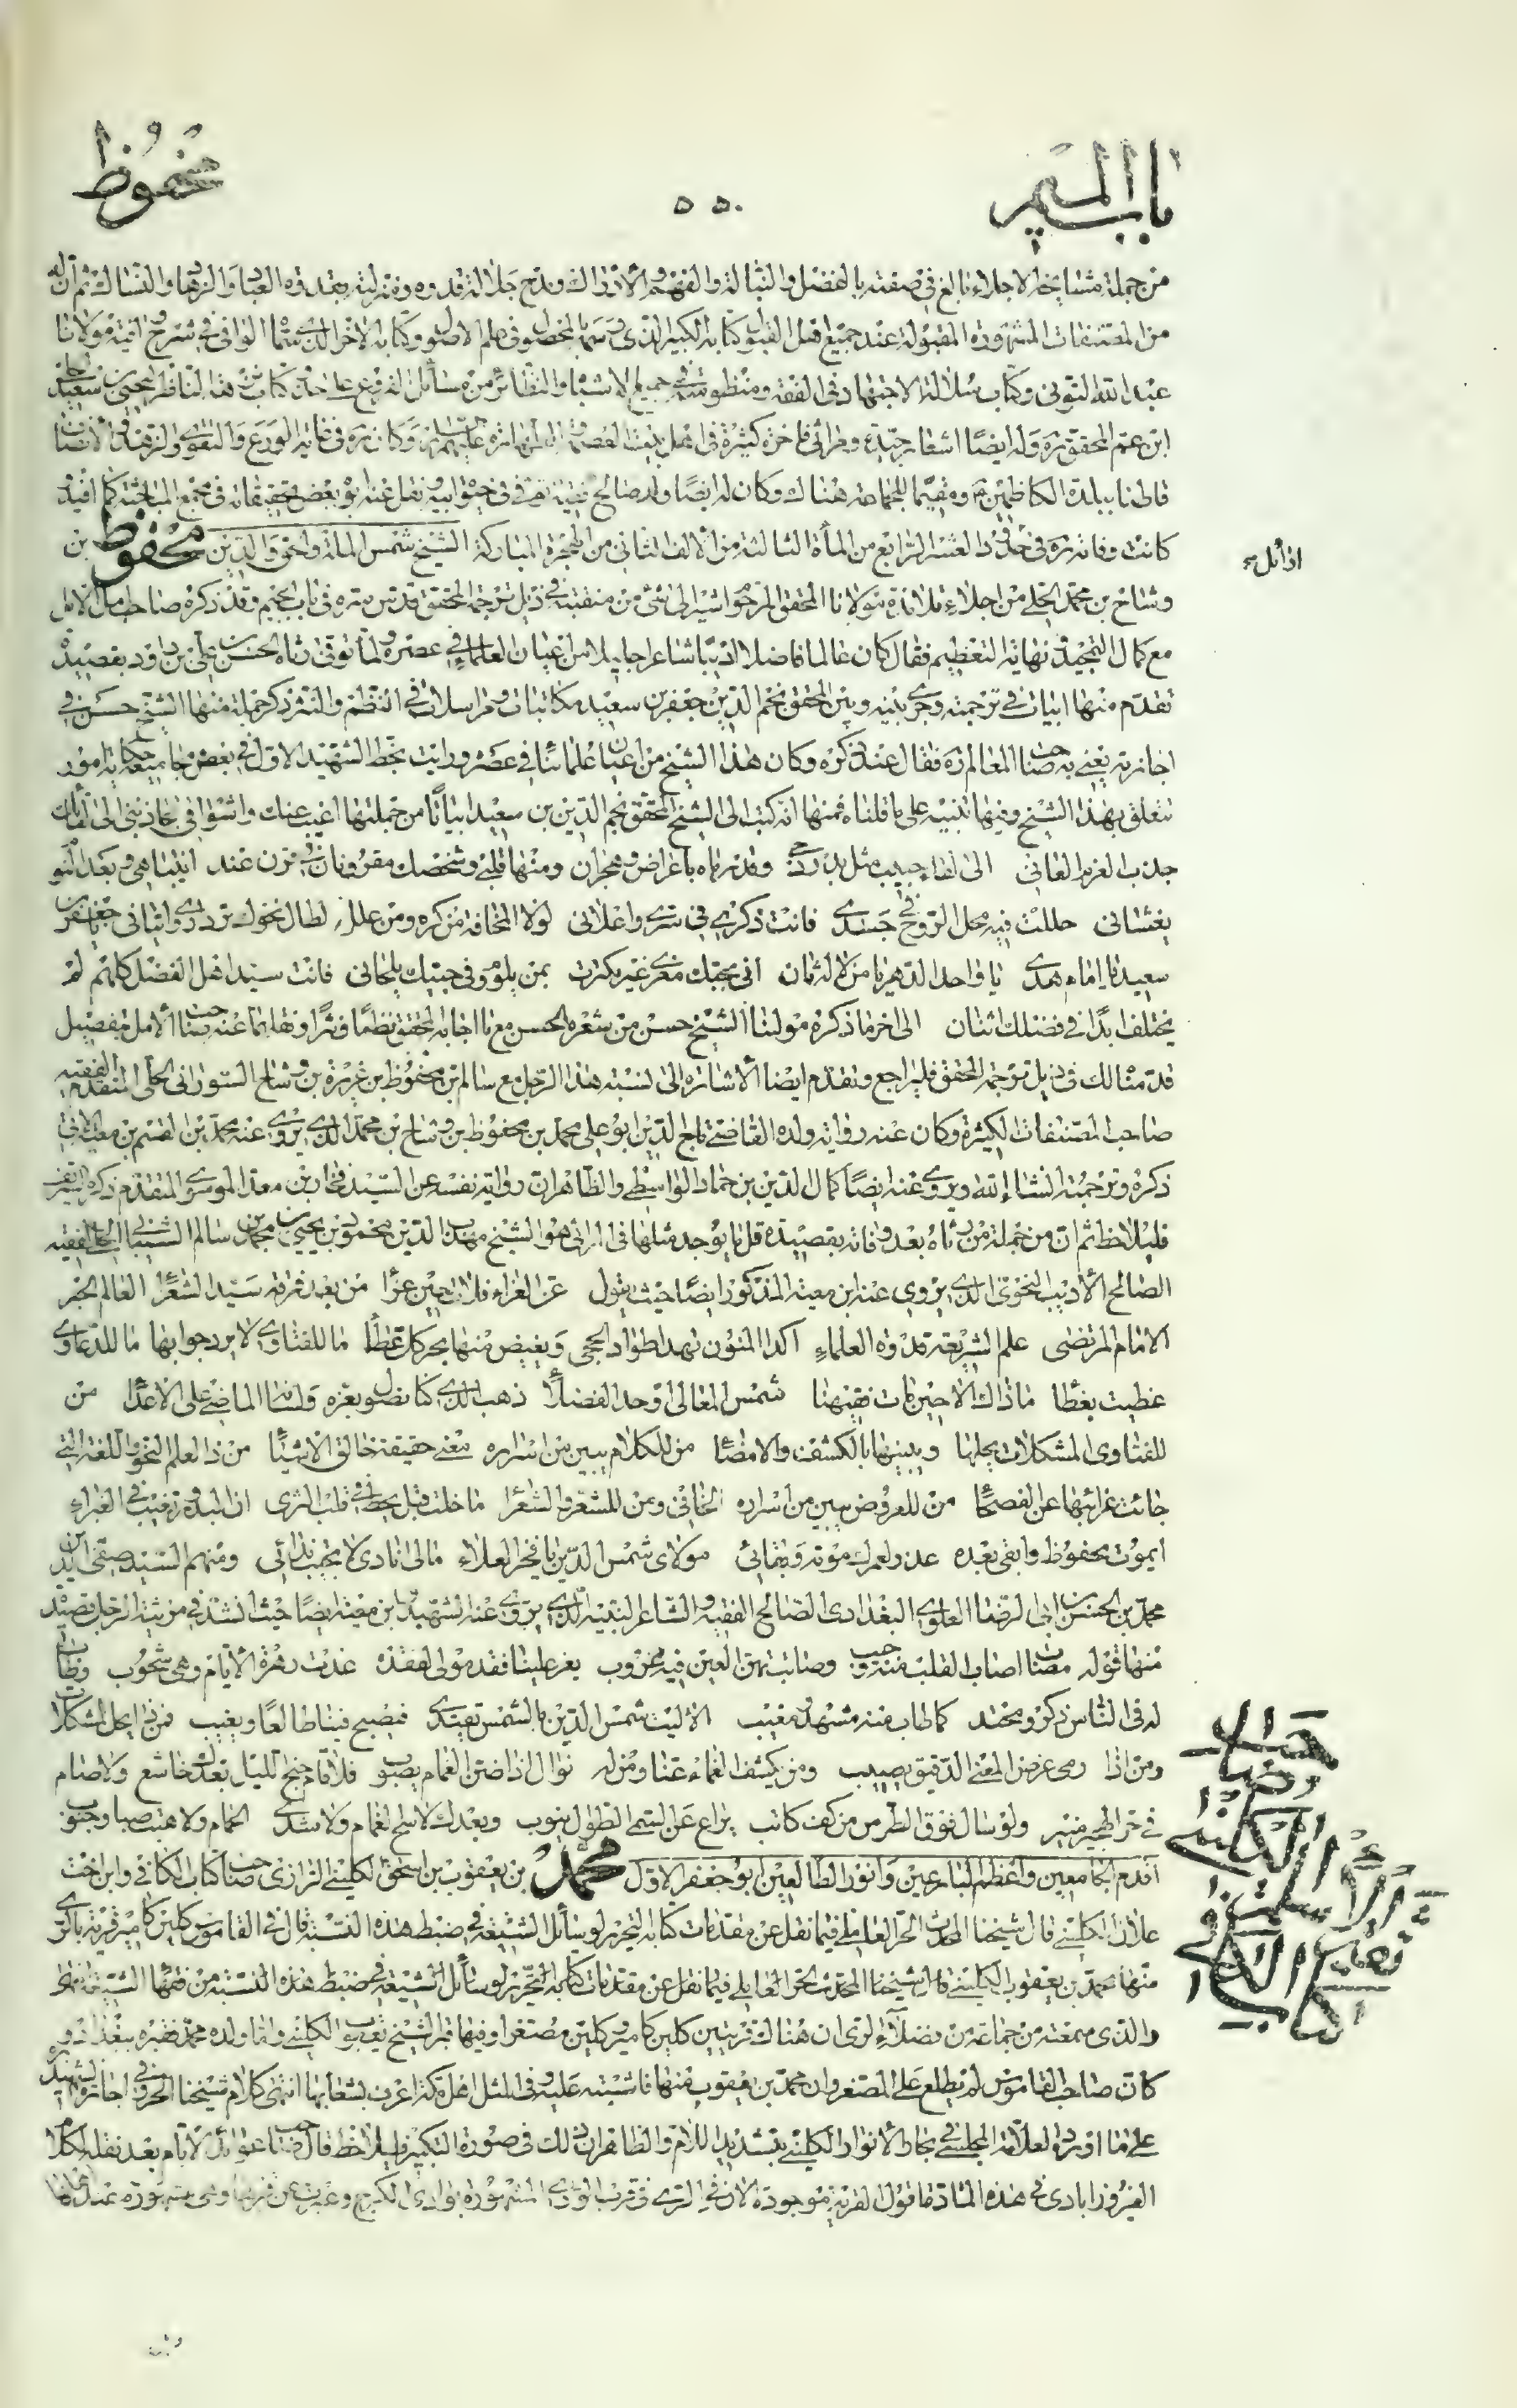 باب الميم
٥٥٠
محفوظ
من جملة مشايخنا الاجلاء بالغ في صفته بالفضل والنبالة والفهم والادراك ومدح جلالة قدره ومنزلته العباد والزهاد والنساك ثم ان له
من المصنفات المشهورة المقبولة عند جميع اهل القبول كتابه الكبير الذي سماه المحصول في علم الاصول وكتابه الاخر الذي سماه الوافي في شرح وافية مولانا
عبد الله التوني وكتاب سلالة الاجتهاد في الفقه ومنظومته في جميع الاشباه والنظائر من مسائل الفروع على حذو كتاب نزهة الناظر ليحيى بن سعيد
ابن عم المحقق ره وله ايضا اشعار جيدة ومراثي فاخرة كثيرة في اهل بيت وكان ره في غاية الورع والتقوى والزهد والانصاف
قاطنا ببلدة الكاظمين ومقيما للجماعة هناك وكان له ايضا ولد صالح فقيه نقل عنه بعض تحقيقاته في مجمع كما افيد
كانت وفاته ره في العشر الرابع من المأة الثالثة من الالف الثاني من الهجرة المباركة الشيخ شمس الملة والحق والدين محفوظ بن
اوائل
وشاح بن محمد الحلي من اجلاء تلامذة مولانا المحقق المرحوم اشير الى شيء من منقبته في ذيل ترجمة المحقق قدس سره في باب الجيم وقد ذكره صاحب امل الامل
مع كمال التمجيد ونهاية التعظيم فقال كان عالما فاضلا اديبا شاعرا جليلا من اعيان العلماء في عصره ولما توفي رثاه الحسن بن علي بن داود بقصيدة
تقدم منها ابيات في ترجمته وجرى بينه وبين المحقق نجم الدين جعفر بن سعيد مكاتبات ومراسلات في النظم والنثر ذكر جملة منها الشيخ حسن في
اجازته يعني به صاحب المعالم ره فقال عند ذكره وكان هذا الشيخ من اعيان علمائنا في عصره ورايت بخط الشهيد الاول في بعض مجاميعه حكاية امور
تتعلق بهذا الشيخ وفيها تنبيه على ما قلناه فمنها انه كتب الى الشيخ المحقق نجم الدين بن سعيد ابياتا من جملتها اغيب عنك واشواقي تجاذبني الى لقائك
جذب المغرم العاني الى لقاء حبيب مثل بدر دجى وقد رماه باعراض وهجران ومنها قلبي وشخصك مقرونان في قرن عند انتباهي وبعد النوم
يغشاني حللت فيه محل الروح في جسدي فانت ذكري في سري واعلاني لولا المخافة من كره ومن ملل لطال نحوك تردادي واتياني جعفر بن
سعيد يا امام هدى يا واحد الدهر يا من لا له ثان اني بحبك مغرى غير مكترث بمن يلوم وفي حبيك يلحاني فانت سيد اهل الفضل كلهم لم
يختلف ابدا في فضلك اثنان الى اخر ما ذكره مولنا الشيخ حسن من شعره الحسن مع ما اجابه المحقق نظما ونثرا ونقلهما عنه صاحب الامل بتفصيل
قدمنا لك في ذيل ترجمة المحقق فليراجع وتقدم ايضا الاشارة الى نسبة هذا الرجل مع سالم بن محفوظ بن عزيزة بن وشاح السوراني الحلي المتقدم الفقيه
صاحب المصنفات الكثيرة وكان عنه رواية ولده القاضي تاج الدين ابو علي محمد بن محفوظ بن وشاح بن محمد الذي يروى عنه محمد بن القسم بن معية الاتي
ذكره وترجمته انشاء الله ويروى عنه ايضا كمال الدين بن حماد الواسطي والظاهر ان رواية نفسه عن السيد فخار بن معد الموسوي المتقدم ذكره الشريف
فليلاحظ ثم ان من جملة من رثاه بعد وفاته بقصيدة قل ما يوجد مثلها في المراثي هو الشيخ مهذب الدين محمود بن يحيى بن محمد بن سالم الشيباني الحلي الفقيه
الصالح الاديب النحوي الذي يروي عنه ابن معية المذكور ايضا حيث يقول عز العزاء فلات حين عزاء من بعد فرقة سيد الشعراء العالم الحبر
الامام المرتضى علم الشريعة قدوة العلماء اكذا المنون تهد اطواد الحجى ويغيض منها بحر كل عطاء ما للفتاوى لا يرد جوابها ما للدعاوى
غطيت بغطاء ما ذاك الا حين مات فقيهنا شمس المعالي اوحد الفضلاء ذهب الذي كنا نصول بعزه ولسانه الماضي على الاعداء من
للفتاوى المشكلات يحلها ويبينها بالكشف والامضاء من للكلام يبين من اسراره معنى حقيقة خالق الاشياء من ذا لعلم النحو واللغة التي
جاءت غرائبها عن الفصحاء من للعروض يبين من اسراره الخافي ومن للشعر والشعراء ما خلت قبل يحط في قلب الثرى ان البدور تغيب في الغبراء
ايموت محفوظ وابقى بعده غدر لعمرك موته وبقائي مولاي شمس الدين يا فخر العلاء مالي انادي لا تجيب ندائي ومنهم السيد صفي الدين
محمد بن الحسن بن ابي الرضا العلوي البغدادي الصالح الفقيه والشاعر النبيه الذي يروى عنه الشهيد وابن معية ايضا حيث انشد في مرثية الرجل قصيدة
منها قوله مصاب اصاب القلب منه وجيب وصابت بهمر العين فيه غروب يعز علينا فقد مولى لفقده غدت زهرة الايام وهي شحوب وطاب
له في الناس ذكر ومحتد كما طاب منه مشهد ومغيب الا ليت شمس الدين بالشمس تفتدى فيصبح فينا طالعا ويغيب فمن ذا يحل المشكلات
ومن اذا رمى غرض المعنى الدقيق يصيب ومن يكشف الغماء عنا ومن له نوال اذا ضن الغمام يصوب فلا قام جنح الليل بعدك خاشع ولا صام
في حر الهجير منيب ولو سال فوق الطرس من كف كاتب يراع عن السمر الطوال ينوب وبعدك لا سح الغمام ولا شدا الحمام ولا هبت صبا وجنوب
اقدم الجامعين واعظم البارعين وانور الطالعين ابو جعفر الاول محمد بن يعقوب بن اسحق الكليني الرازي صاحب كتاب الكافي وابن اخت
علان الكليني قال شيخنا المحدث الحر العاملي فيما نقل عن مقدمات كتابه التحرير لوسائل الشيعة في ضبط هذه النسبة قال في القاموس كلين كامير قرية بالري
منها محمد بن يعقوب الكليني قال شيخنا المحدث الحر العاملي فيما نقل عن مقدمات كتابه التحرير لوسائل الشيعة في ضبط هذه النسبة من فقهاء الشيعة انتهى
والذي سمعته من جماعة من فضلاء الري ان هناك قريتين كلين كامير وكلين مصغرا وفيها قبر الشيخ يعقوب الكليني واما ولده محمد فقبره ببغداد
كان صاحب القاموس لم يطلع على المصغر وان محمد بن يعقوب منها فاشتبه عليه وفي المثل اهل مكة اعرف بشعابها انتهى كلام شيخنا الحر وفي اجازة الشهيد
على ما اورده العلامة المجلسي في بحار الانوار الكليني بتشديد اللام والظاهر ان ذلك في صورة التكبير فليلاحظ قال صاحب عوائد الايام بعد نقله لكلام
الفيروزابادي في هذه المادة ما اقول القرية موجودة الان في الري في قرب الوادي المشهورة بوادي الكرج وعبرت عن قربها وهي مشهورة عند اهلها